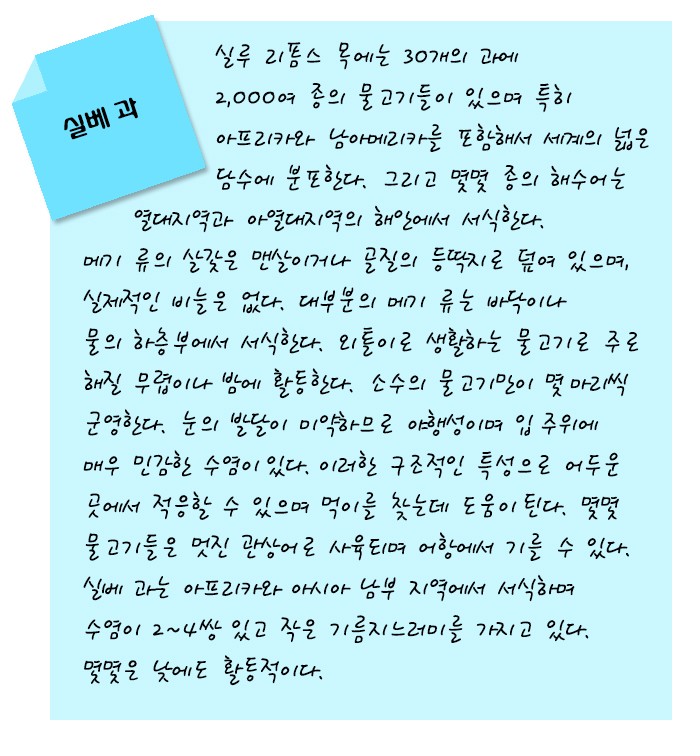 실베 과
실루 리폼스 목에는 30개의 과에
2,000여 종의 물고기들이 있으며 특히
아프리카와 남아메리카를 포함해서 세계의 넓은
담수에 분포한다. 그리고 몇몇 종의 해수어는
열대지역과 아열대지역의 해안에서 서식한다.
메기 류의 살갗은 맨살이거나 골질의 등딱지로 덮여 있으며,
실제적인 비늘은 없다. 대부분의 메기 류는 바닥이나
물의 하층부에서 서식한다. 외톨이로 생활하는 물고기로 주로
해질 무렵이나 밤에 활동한다. 소수의 물고기만이 몇 마리씩
군영한다. 눈의 발달이 미약하므로 야행성이며 입 주위에
매우 민감한 수염이 있다. 이러한 구조적인 특성으로 어두운
곳에서 적응할 수 있으며 먹이를 찾는데 도움이 된다. 몇몇
물고기들은 멋진 관상어로 사육되며 어항에서 기를 수 있다.
실베 과는 아프리카와 아시아 남부 지역에서 서식하며
수염이 2~4쌍 있고 작은 기름지느러미를 가지고 있다.
몇몇은 낮에도 활동적이다.